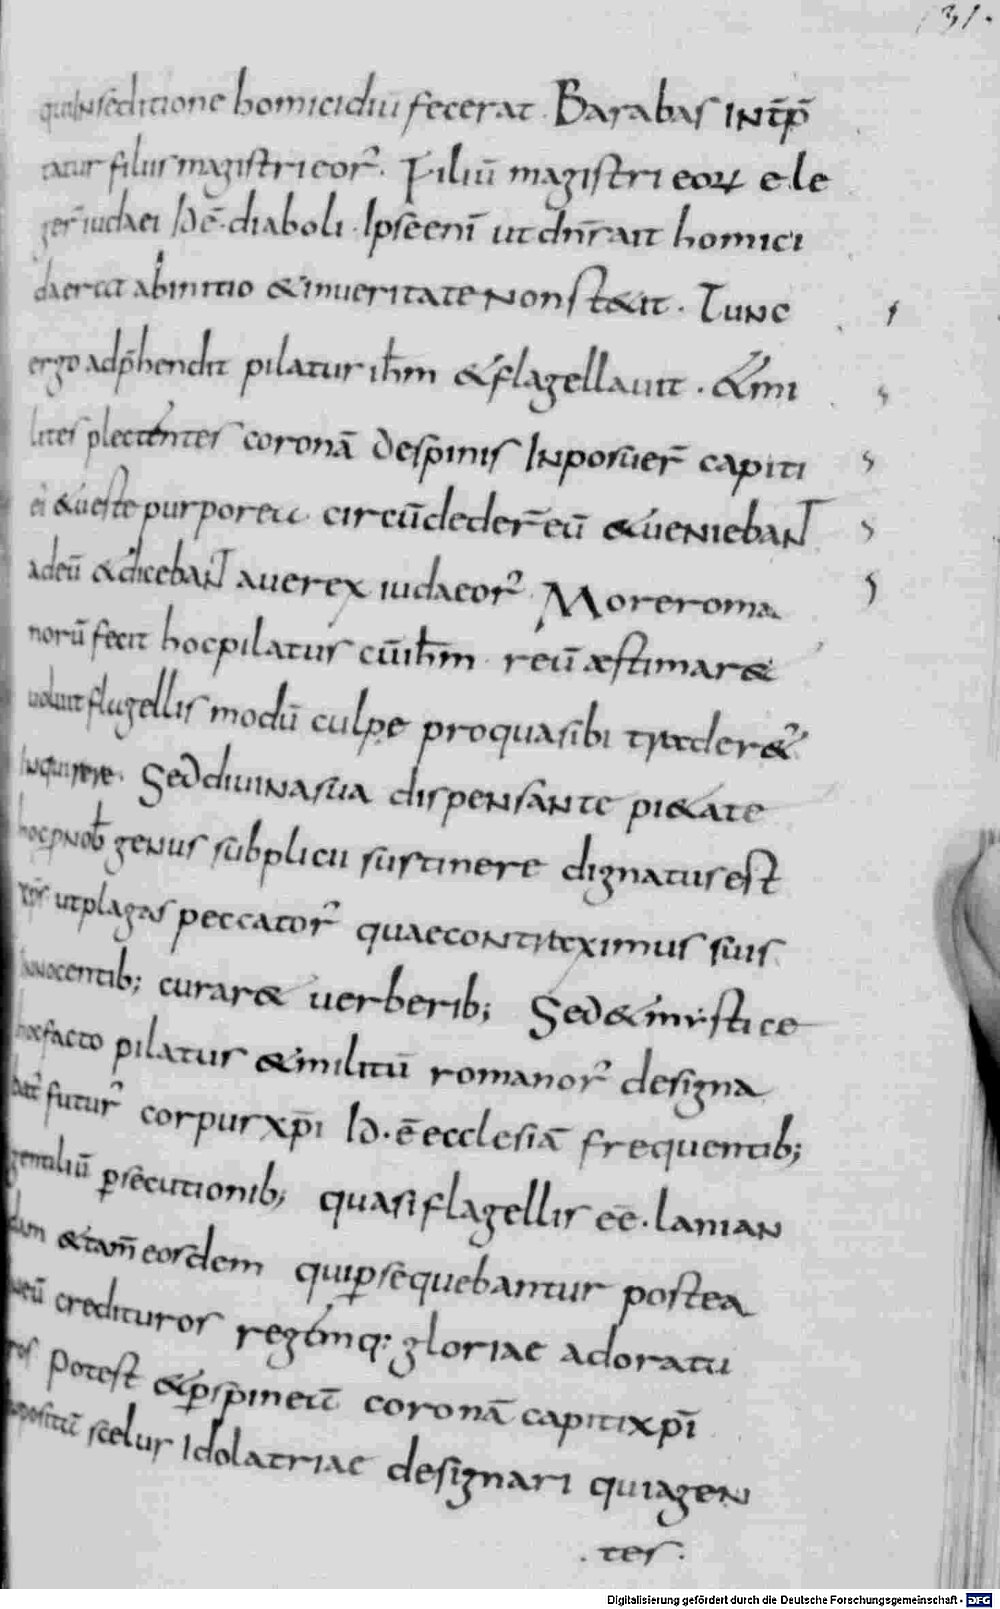 131.
qui in seditione homicidiū fecerat. Barabas int̄p̄
tatur filius magistri eor̄. Filiū magistri eoꝝ ele
ger̄ iudaei id ē. diaboli. Ipse enī ut dn̄s ait homici
da erat ab initio & in ueritate non st&it. Tunc
ergo adp̄hendit pilatus ih̄m & flagellauit. & mi
lites plectentes coronā de spinis inposuer̄ capiti
ei & ueste purpurea circūdeder̄ eū & ueniebant
ad eū & dicebant aue rex iudaeor̄. More roma
norū fecit hoc pilatus cū ih̄m reū aestimar&
uoluit flagellis modū culpe pro qua sibi trader&
inquirere. Sed diuina sua dispensante pi&ate
hoc ꝓ nob̄ genus subplicii sustinere dignatus est
xp̄s ut plagas peccator̄ quae contraximus suis
innocentib; curar& uerberib; Sed & mystice
hoc facto pilatus & militū romanor̄ designa
bat̄ futur̄ corpus xp̄i id. ē ecclesiā frequentib;
gentiliū ꝑsecutionib; quasi flagellis eē. lanian
dam & tam̄ eosdem qui ꝑsequebantur postea
in eū credituros regēmq: gloriae adoratu
ros Potest & ꝑ spineā coronā capiti xp̄i
inpositā scelus idolatriae designari quia gen
. tes.
Digitalisierung gefördert durch die Deutsche Forschungsgemeinschaft - DFG